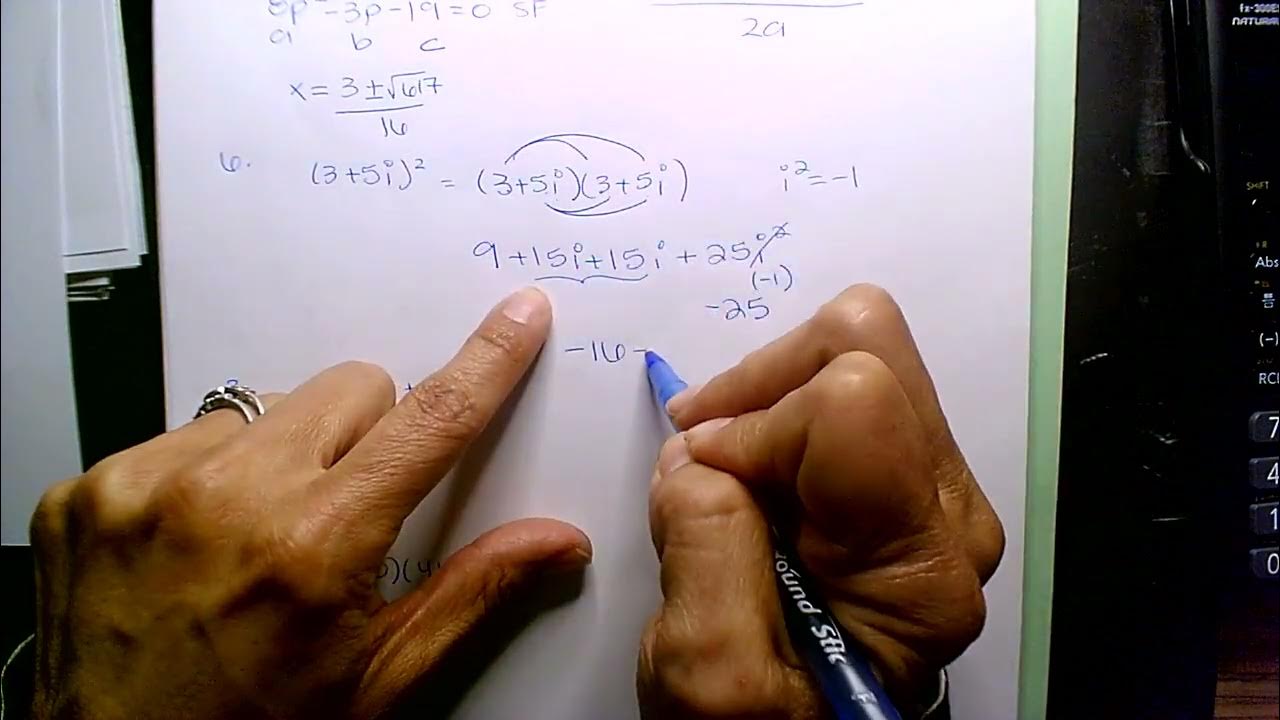 8p² - 3p - 19 = 0 SF
a b c
2a
x = 3 ± √617
16
6. (3 + 5i)² = (3 + 5i)(3 + 5i) i² = -1
9 + 15i + 15i + 25i²
(-1)
-25
-16 -
)(4
Round Stic
fx-300ES
NATURAL
SHIFT
Abs
(-)
RCL
7
4
1
0